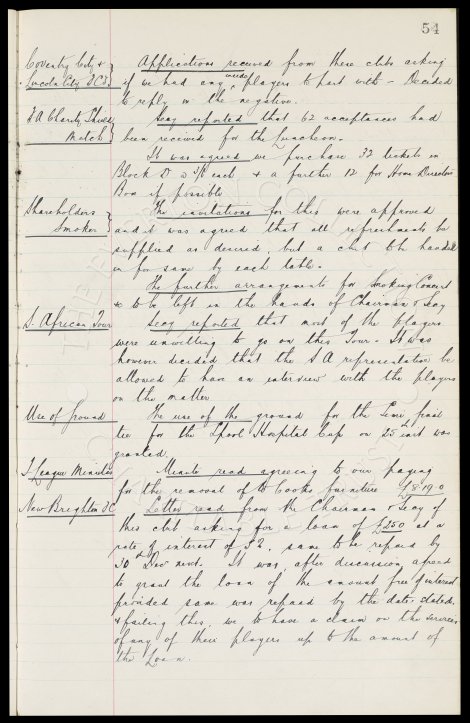 54
Coventry City &
Lincoln City F.C's
Applications received from these clubs asking
if we had any inside players to part with - Decided
to reply in the negative.
F A Charity Shield
Match
Secy reported that 62 acceptances had
been received for the Luncheon.
It was agreed we purchase 32 tickets in
Block D @ 3/6 each & a further 12 for Home Directors
Box if possible
Shareholders
Smoker
The invitations for this were approved
and it was agreed that all refreshments be
supplied as desired, but a chit to be handed
in for same by each table.
The further arrangements for Smoking Concert
& to be left in the hands of Chairman & Secy
S. African Tour
Secy reported that most of the players
were unwilling to go on this Tour. It was
however decided that the S A representative be
allowed to have an interview with the players
on the matter
Use of Ground
The use of the ground for the Semi final
tie for the Lpool Hospital Cup on 25 inst was
granted.
F. League Minutes
Minute read agreeing to our paying
for the removal of to Cooks furniture £8.19.0
New Brighton FC
Letter read from the Chairman & Secy of
this club asking for a loan of £250 at a
rate of interest of 5%, same to be repaid by
30th Nov next. It was, after discussion, agreed
to grant the loan of the amount free of interest
provided same was repaid by the date stated,
& failing this, we to have a claim on the services
of any of their players up to the amount of
the Loan.